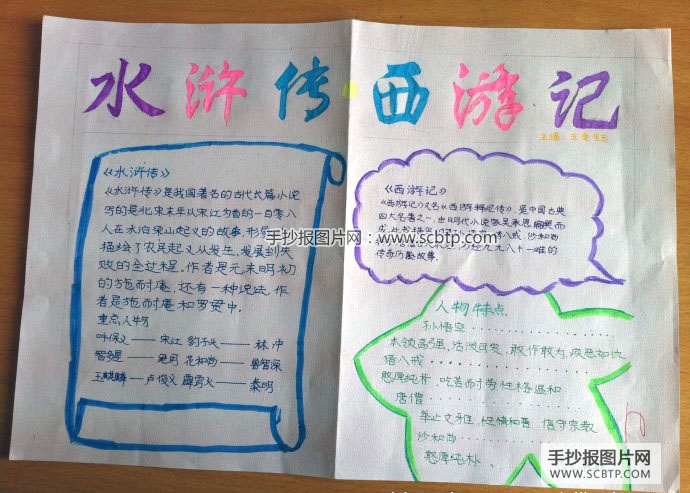 水浒传·西游记
主编：王
《水浒传》
《水浒传》是我国著名的古代长篇小说
写的是北宋末年以宋江为首的一百零八
人在水泊梁山起义的故事，形
描绘了农民起义从发生、发展到失
败的全过程，作者是元末明初
的施耐庵，还有一种说法，作
者是施耐庵和罗贯中．
重点人物
呼保义——宋江 豹子头——林冲
智多星——吴用 花和尚——鲁智深
玉麒麟——卢俊义 霹雳火——秦明
《西游记》
《西游记》又名《西游释厄传》，是中国古典
四大名著之一，由明代小说家吴承恩编撰而
成
九九八十一难的
传奇历险故事．
手抄报图片网：www.scbtp.com
人物特点
孙悟空
本领高强、活泼可爱、敢作敢为、疾恶如仇
猪八戒
憨厚纯朴 吃苦而耐劳 性格温和
唐僧
举止文雅、性情和善 信守宗教
沙和尚
憨厚纯朴．
手抄报图片网
SCBTP.COM